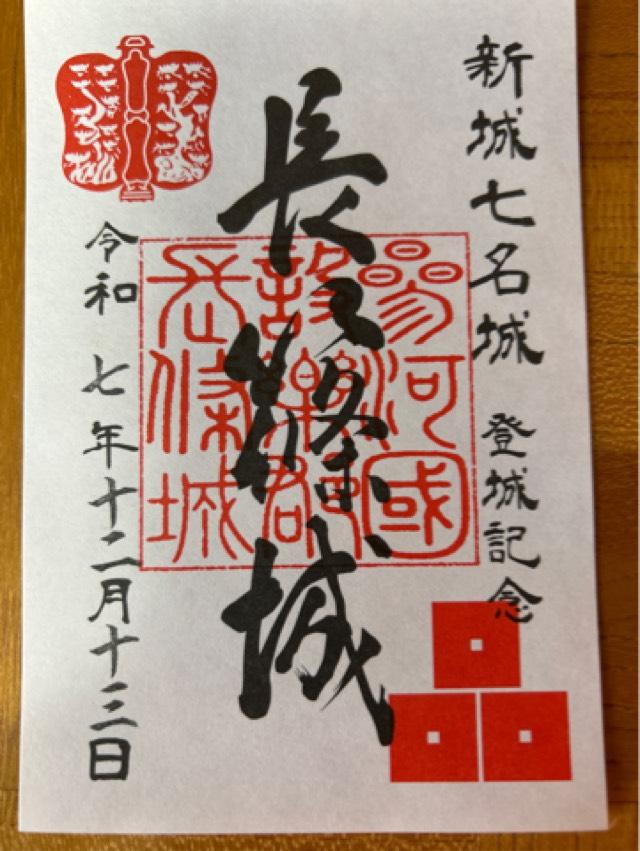 新城七名城 登城記念
長篠城
參河國
設樂郡
令和 七年十二月十三日